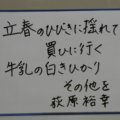 立春のひびきに揺れて
買ひに行く
牛乳の白きひかり
その他を
荻原裕幸